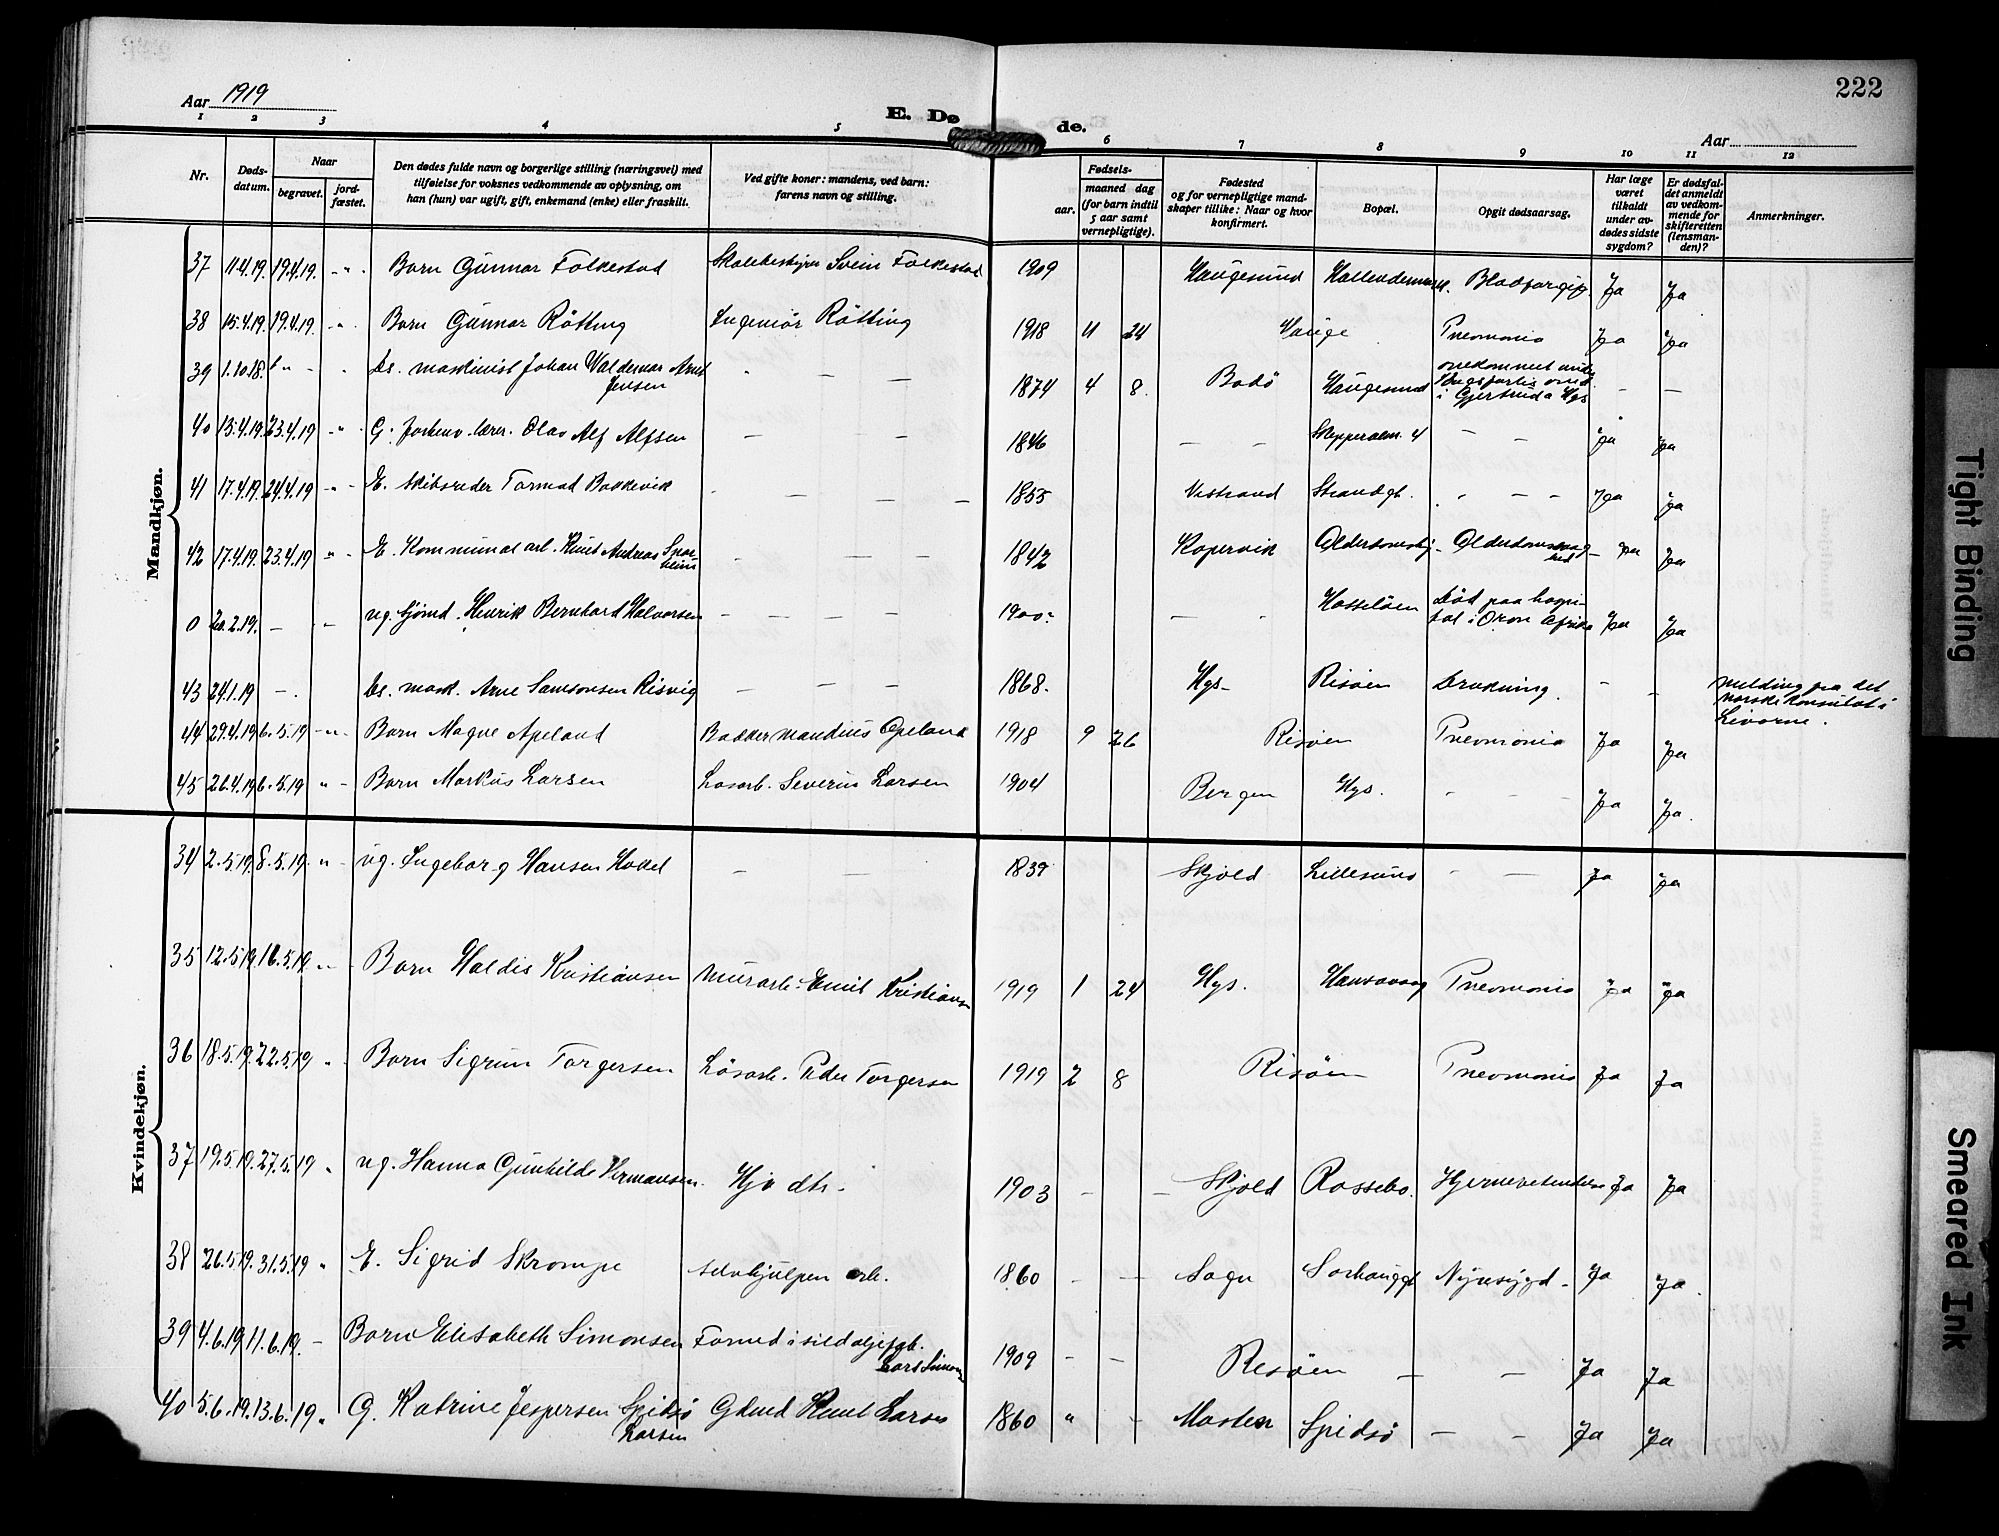 222
Aar 1919
E. Dø
de.
Aar
1 2 3 4 5 6 7 8 9 10 11 12
Nr.
Døds-
datum.
Naar
begravet.
jord-
fæstet.
Den dødes fulde navn og borgerlige stilling (næringsvei) med
tilføielse for voksnes vedkommende av oplysning, om
han (hun) var ugift, gift, enkemand (enke) eller fraskilt.
Ved gifte koner: mandens, ved barn:
farens navn og stilling.
Fødsels-
aar.
maaned dag
(for barn indtil
5 aar samt
vernepligtige).
Fødested
og for vernepligtige mand-
skaper tillike: Naar og hvor
konfirmert.
Bopæl.
Opgit dødsaarsag.
Har læge
været
tilkaldt
under av-
dødes sidste
sygdom?
Er dødsfal-
det anmeldt
av vedkom-
mende for
skifteretten
(lensman-
den)?
Anmerkninger.
Mandkjøn.
37 11.4.19. 19.4.19. -"- Barn Gunnar Folkestad Skolebestyrer Svein Folkestad 1909 Haugesund Blodforgif. Ja Ja
38 15.4.19. 19.4.19. -"- Barn Gunnar Rötting Ingeniör Rötting 1918 11 24 Hauge Pneumonia Ja Ja
39 1.10.18. maskinist Johan Valdemar Arnt
Jensen
1874 4 8. Bodö Haugesund omkommet
i Gjertrud a Hgs - -
40 15.4.19. 23.4.19 -"- G. forhenv. lærer. Olav Alf Alfsen - - 1846 - - 4 - - Ja Ja
41 17.4.19. 24.4.19 -"- E. Skibsreder Tormod Bakkevik - - - 1855 Strandgt. - - - Ja Ja
42 17.4.19. 23.4.19 "- E. Kommunal arb. Knut Andreas
1842 Kopervik Alderdomshj. Alderdomssvag-
hed Ja Ja
0 20.2.19. - - ug. sjömd. Henrik Bernhard Halvorsen - - - 1900. - - Hasselöen Död paa hospi-
tal i Oran Afrika Ja Ja
43 24.1.19 - . mask. Arne Samsonsen Risvig - - - 1868. Hgs- Risöen Drukning. - - Melding fra det
norske konsulat i
Livorne.
44 29.4.19 6.5.19 -"- Barn Magne Apeland Bakker Mandius Apeland 1918 9 26 Risöen Pneumonia Ja Ja
45 26.4.19 6.5.19 "- Barn Markus Larsen Løsarb. Severin Larsen 1904 Bergen Hgs. - - - Ja Ja.
Kvindekjøn.
34 2.5.19. 8.5.19. "- ug. Ingeborg Hansen - - 1839 Skjold Lillesund - - Ja Ja
35 12.5.19. 16.5.19. "- Barn Haldis Kristiansen Murarb. Emil Kristiansen 1919 1 24 Hgs. Pneumonia Ja Ja
36 18.5.19. 22.5.19 "- Barn Sigrun Torgersen Lösarb. Peder Torgersen 1919 2 8 Risöen Pneumonia Ja Ja
37 19.5.19. 27.5.19 " ug. Hanna Gunhilda Hermansen. Hjv dtr. 1903 - - Skjold Rossebo. Ja Ja
38 26.5.19. 31.5.19 " E. Sigrid Skrompe selvhjulpen arb. 1860 - - Sogn Sørhauggt Nyresygd. Ja Ja.
39 4.6.19 11.6.19. - Barn Elisabeth Simonsen Formd i sildoljefab.
Lars Simons
1909 - - Risöen - - Ja Ja
40 5.6.19. 13.6.19 " G. Katrine Jespersen Spidsö
Larsen
Gbmd Knut Larsen 1860 " - Moster Spidsö - - Ja Ja
Tight Binding
Smeared Ink